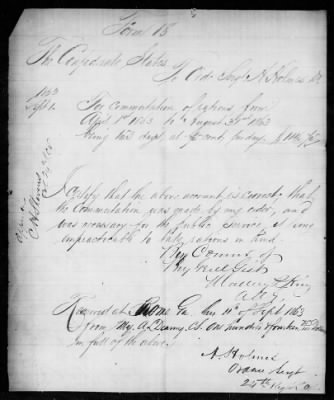 Form 18
The Confederate States
To Ord. Sergt A. Holmes Dr.
1863
Sept 1. For Commutation of rations from
April 1st 1863 to August 31st 1863
being 153 days, at 75 cents per day
I certify that the above account is correct that
the Commutation was made by my order, and
was necessary for the public service, it being
impracticable to take rations in kind.
By Command of
Brig Genl Gist
A A G
Received at Rome Ga this 11th of Sept 1863
from Maj. A. L. C.S. One hundred fourteen Dollars
in full of the above.
A. Holmes
Ordnance Sergt
24th Regt